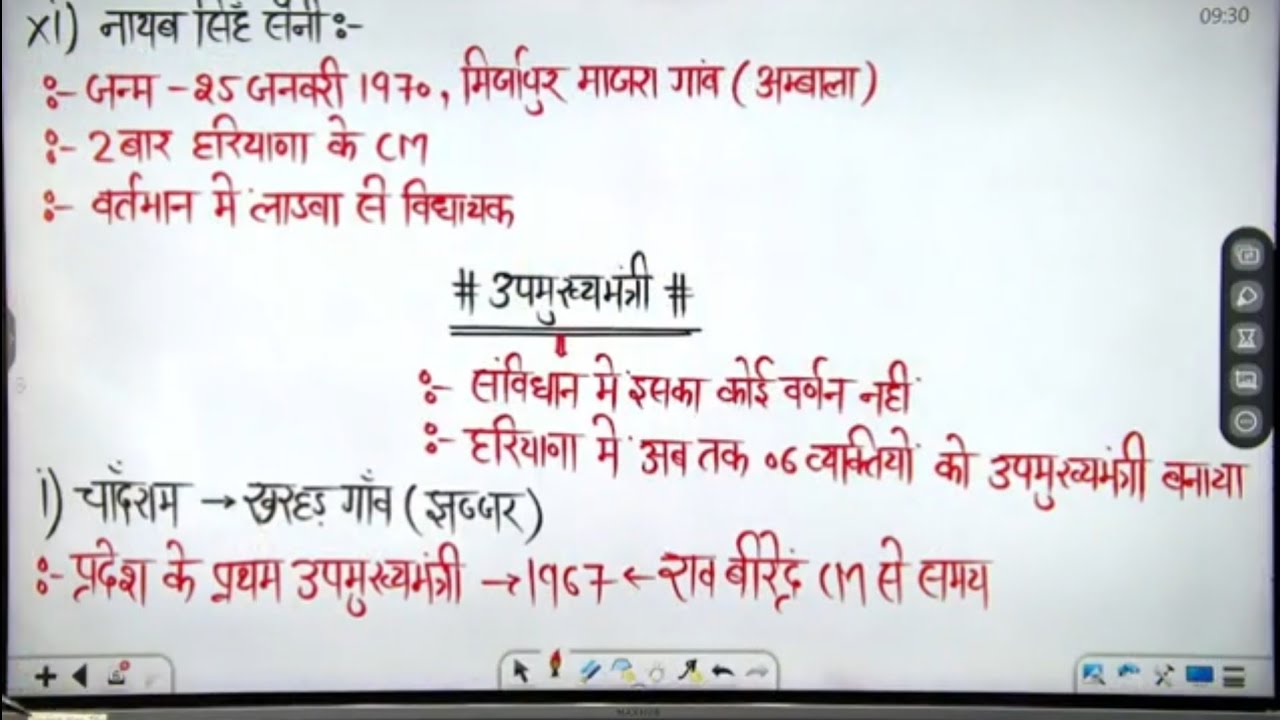 09:30
xi) नायब सिंह सैनी :-
:- जन्म - 25 जनवरी 1970, मिर्जापुर माजरा गांव (अम्बाला)
:- 2 बार हरियाणा के CM
:- वर्तमान में लाडवा से विधायक
# उपमुख्यमंत्री #
:- संविधान में इसका कोई वर्णन नहीं
:- हरियाणा में अब तक 06 व्यक्तियों को उपमुख्यमंत्री बनाया
i) चाँदराम → खरहड़ गाँव (झज्जर)
:- प्रदेश के प्रथम उपमुख्यमंत्री → 1967 ← राव बीरेंद्र CM से समय